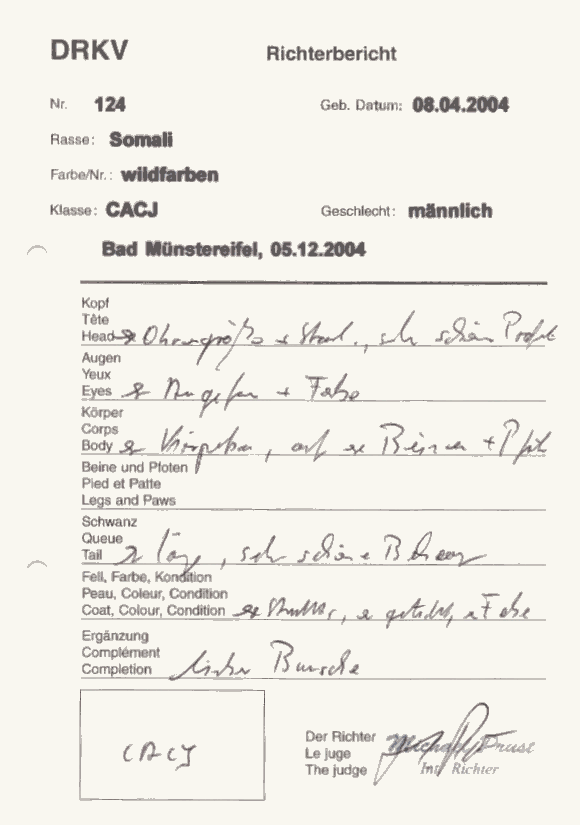 DRKV Richterbericht
Nr. 124 Geb. Datum: 08.04.2004
Rasse: Somali
Farbe/Nr.: wildfarben
Klasse: CACJ Geschlecht: männlich
Bad Münstereifel, 05.12.2004
Kopf
Tête
Head Ohrengröße + Stand, sehr schönes Profil
Augen
Yeux
Eyes + Farbe
Körper
Corps
Body auf Beinen + Pfot
Beine und Pfoten
Pied et Patte
Legs and Paws
Schwanz
Queue
Tail sehr schöne
Fell, Farbe, Kondition
Peau, Coleur, Condition
Coat, Colour, Condition Farbe
Ergänzung
Complément
Completion lieber Bursche
CACJ
Der Richter
Le juge
The judge
Int. Richter